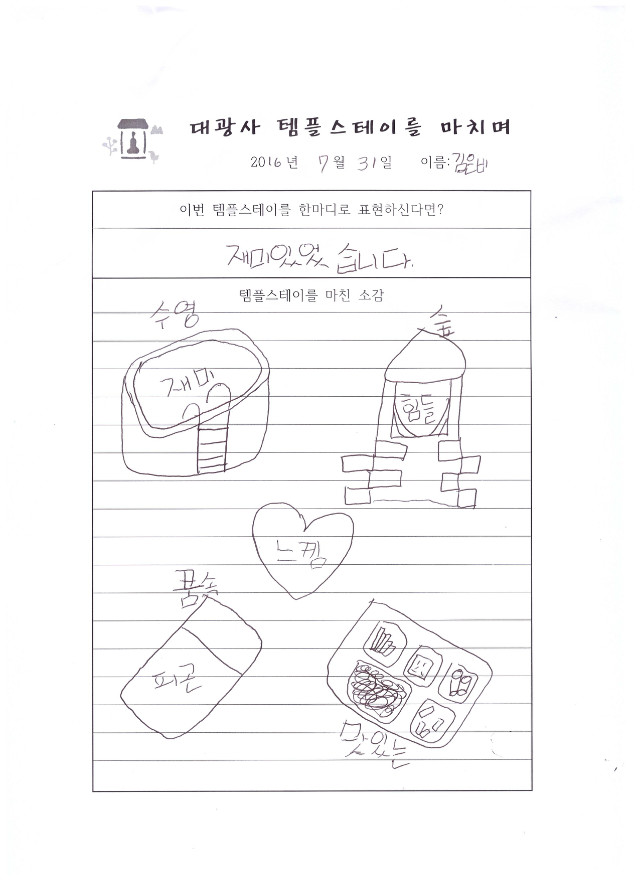 대광사 템플스테이를 마치며
2016년 7월 31일 이름: 김은비
이번 템플스테이를 한마디로 표현하신다면?
재미있었습니다.
템플스테이를 마친 소감
수영
재미
숲
힘듦
느낌
품속
피곤
맛있는